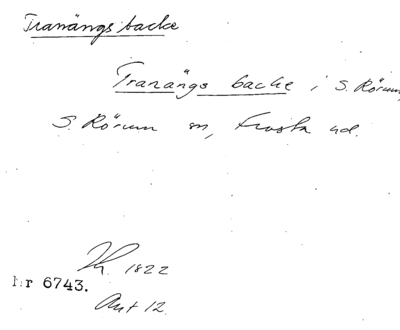 Tranängs backe
Tranängs backe i S. Rörum,
S. Rörum sn, Frosta hd.
1822
Nr 6743.
Ant 12.